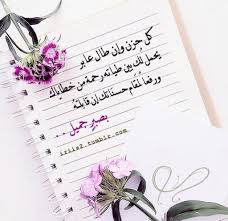 كل حزن وإن طال عابر
يحمل لك بين طياته رحمة من خطاياك
ورفعا لمقام حسناتك إن قابلته
بصبر جميل ...
iriis2.tumblr.com